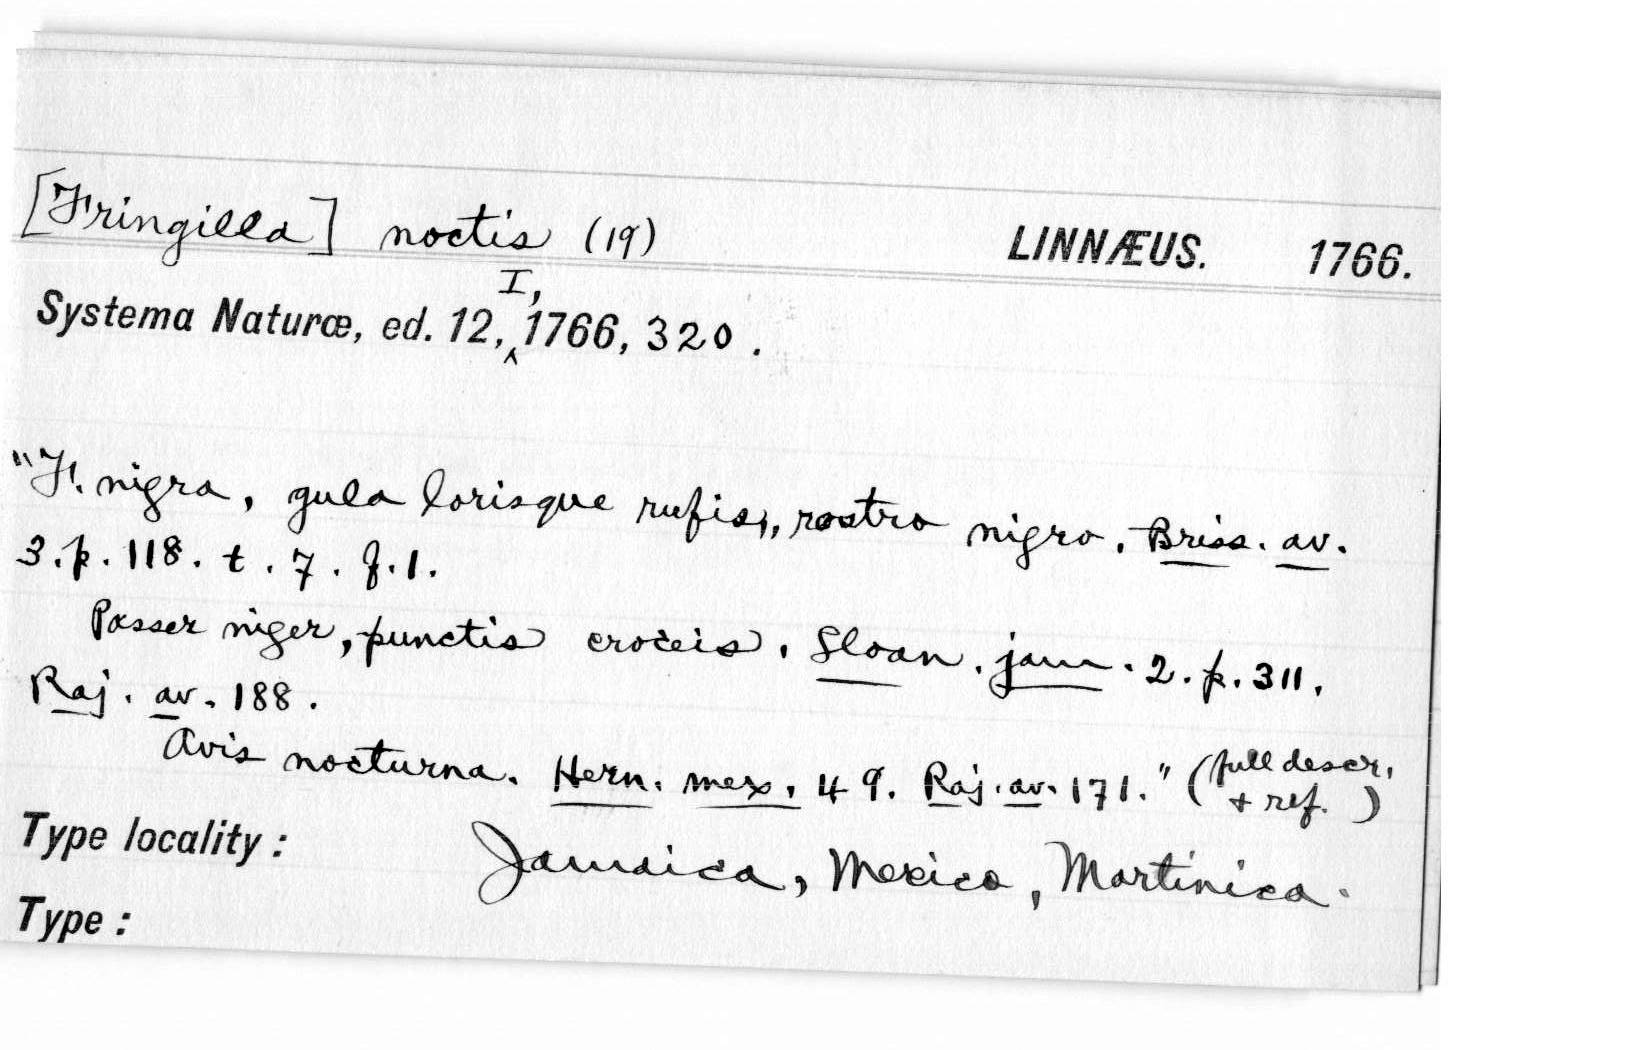 [Fringilla] noctis (19) LINNÆUS. 1766.
Systema Naturæ, ed. 12, I, 1766, 320.
"F. nigra, gula lorisque rufis, rostro nigro. Briss. av.
3. p. 118. t. 7. f. 1.
Passer niger, punctis croceis. Sloan. jam. 2. p. 311.
Raj. av. 188.
Avis nocturna. Hern. mex. 49. Raj. av. 171." (full descr. + ref.)
Type locality: Jamaica, Mexico, Martinica.
Type: